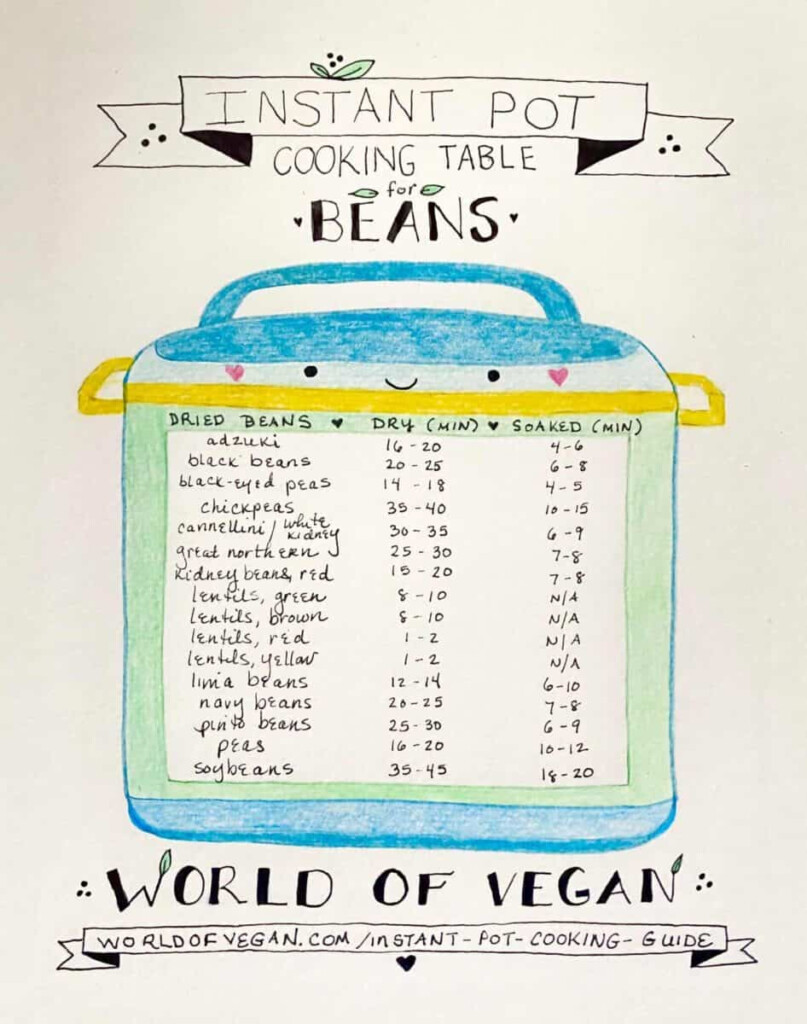 INSTANT POT
COOKING TABLE
for
BEANS
DRIED BEANS DRY (MIN) SOAKED (MIN)
adzuki 16-20 4-6
black beans 20-25 6-8
black-eyed peas 14-18 4-5
chickpeas 35-40 10-15
cannellini/white kidney 30-35 6-9
great northern 25-30 7-8
kidney beans, red 15-20 7-8
lentils, green 8-10 N/A
lentils, brown 8-10 N/A
lentils, red 1-2 N/A
lentils, yellow 1-2 N/A
lima beans 12-14 6-10
navy beans 20-25 7-8
pinto beans 25-30 6-9
peas 16-20 10-12
soybeans 35-45 18-20
WORLD OF VEGAN
WORLDOFVEGAN.COM/INSTANT-POT-COOKING-GUIDE